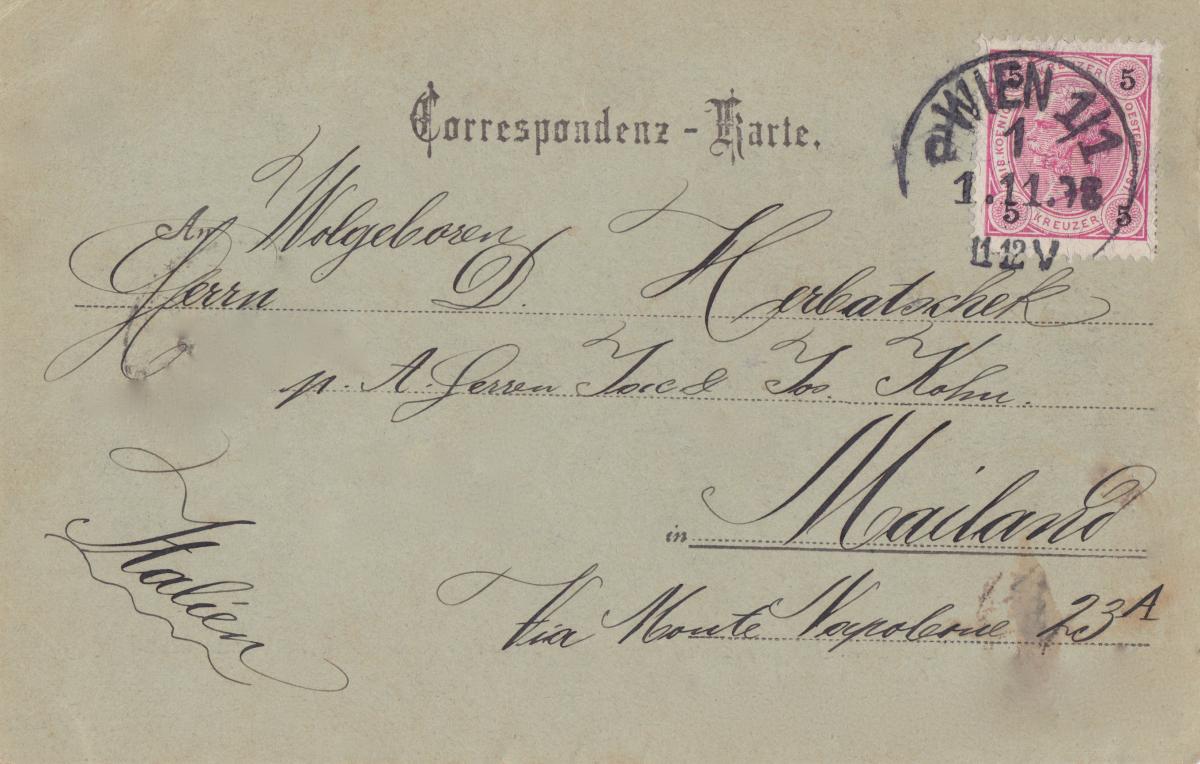 Correspondenz-Karte.
5 KREUZER 5
5 KREUZER 5
WIEN 1/1
1
1.11.
11-12 V
An Wolgeboren
Herrn D. Herbatschek
p. A. Herren Jac & Jos. Kohn.
in Mailand
Italien
Via Monte Napoleone 23A